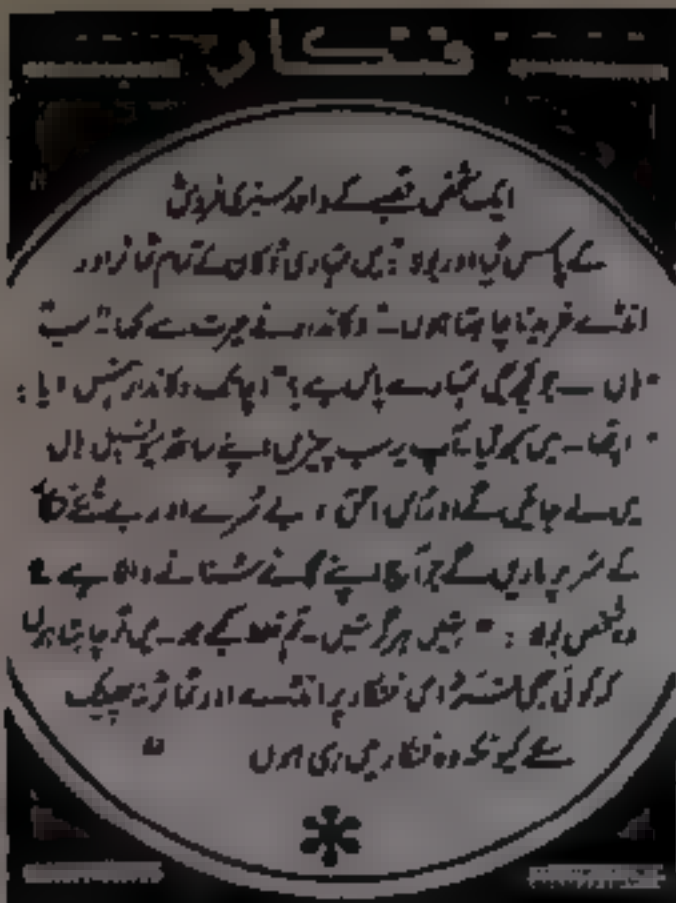 فنکار
ایک شخص قصبے کے واحد سبزی فروش
کے پاس گیا اور بولا: "میں تمہاری دُکان کے تمام ٹماٹر اور
انڈے خریدنا چاہتا ہوں۔" دکاندار نے حیرت سے کہا "سب"
"ہاں ۔ جو کچھ بھی تمہارے پاس ہے" اچانک دکاندار ہنس دیا:
"اچھا۔ میں سمجھ گیا۔ آپ یہ سب چیزیں اپنے ساتھ میونسپل ہال
میں لے جائیں گے اور اس احمق، بے سُرے اور بے
کے سر پر ماریں گے جو آج اپنے گانے سُنانے والا ہے"
وہ شخص بولا: "نہیں ہرگز نہیں۔ تم غلط سمجھے ہو۔ میں تو چاہتا ہوں
کہ کوئی بھی اس فنکار پر انڈے اور ٹماٹر نہ پھینک
سکے کیونکہ وہ فنکار میں ہی ہوں"